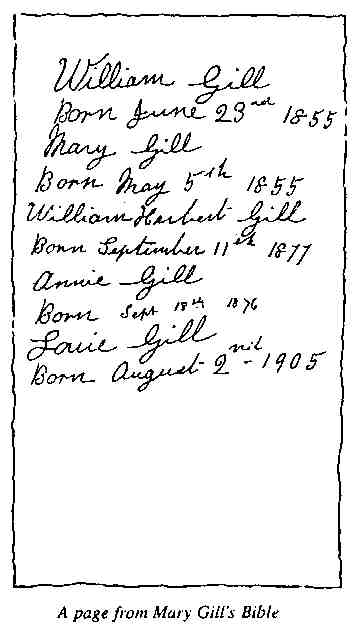 William Gill
Born June 23nd 1855
Mary Gill
Born May 5th 1855
William Herbert Gill
Born September 11th 1877
Annie Gill
Born Sept 18th 1876
Louie Gill
Born August 2nd - 1905
A page from Mary Gill's Bible